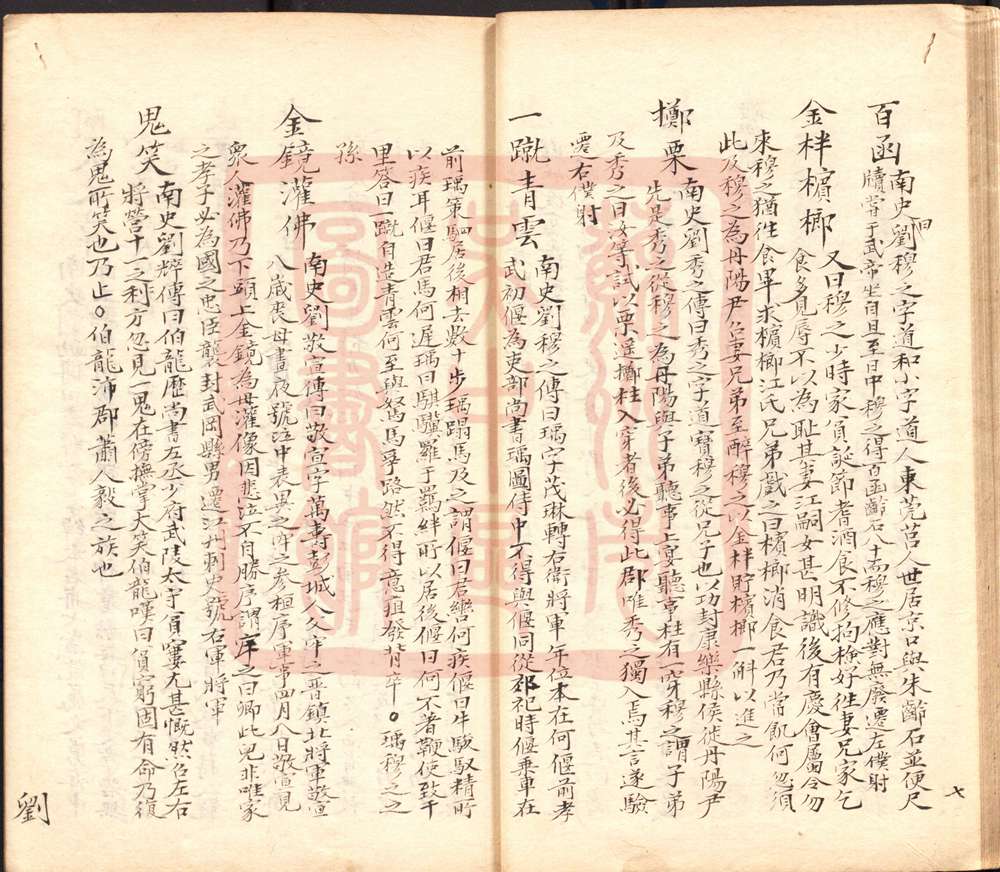 百函 南史劉穆之字道和小字道人東莞莒人世居京口與朱齡石並便尺
牘嘗于武帝坐自旦至日中穆之得百函齡石八十函穆之應對無廢遷左僕射
金柈檳榔 又曰穆之少時家貧誕節耆酒食不修拘檢好徃妻兄家乞
食多見辱不以為恥其妻江嗣女甚明識後有慶會屬令勿
來穆之猶徃食畢求檳榔江氏兄弟戲之曰檳榔消食君乃常飢何忽須
此及穆之為丹陽尹召妻兄弟至醉穆之以金柈貯檳榔一斛以進之
擲栗 南史劉秀之傳曰秀之字道寶穆之從兄子也以功封康樂縣侯徙丹陽尹
先是秀之從穆之為丹陽與子弟聽事上宴聽事柱有一穿穆之謂子弟
及秀之曰汝等試以栗遥擲柱入穿者後必得此郡唯秀之獨入焉其言遂驗
遷右僕射
一蹴青雲 南史劉穆之傳曰瑀字茂琳轉右衛將軍年位本在何偃前孝
武初偃為吏部尚書瑀圖侍中不得與偃同從郊祀時偃乗車在
前瑀策駟居後相去數十步瑀蹋馬及之謂偃曰君轡何疾偃曰牛駿馭精所
以疾耳偃曰君馬何遲瑀曰騏驥羅于羈絆所以居後偃曰何不著鞭使致千
里答曰一蹴自造青雲何至與駑馬爭路然不得意疽發背卒○瑀穆之之
孫
金鏡灌佛 南史劉敬宣傳曰敬宣字萬壽彭城人父牢之晋鎮北將軍敬宣
八歲喪母晝夜號泣中表異之牢之參桓序軍事四月八日敬宣見
衆人灌佛乃下頭上金鏡為母灌像因悲泣不自勝序謂牢之曰卿此兒非唯家
之孝子必為國之忠臣襲封武岡縣男遷江州刺史號右軍將軍
鬼笑 南史劉粹傳曰伯龍歷尚書左丞少府武陵太守貧窶尤甚慨然召左右
將營十一之利方忽見一鬼在傍撫掌大笑伯龍嘆曰貧窮固有命乃復
為鬼所笑也乃止○伯龍沛郡蕭人毅之族也
劉
七